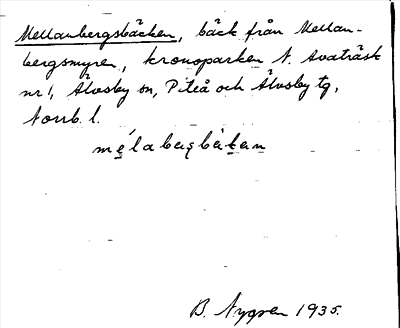 Mellanbergsbäcken, bäck från Mellan-
bergsmyren, kronoparken N. Avaträsk
nr 1, Älvsby sn, Piteå och Älvsby tg,
Norrb. l.
B. Nygren 1935.